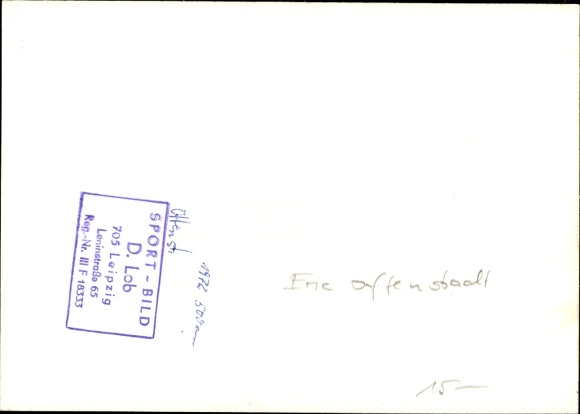 SPORT-BILD
D. Lob
705 Leipzig
Leninstraße 65
Reg.-Nr. III F 18333
1972 500ccm
Eric Offenstadt
15—